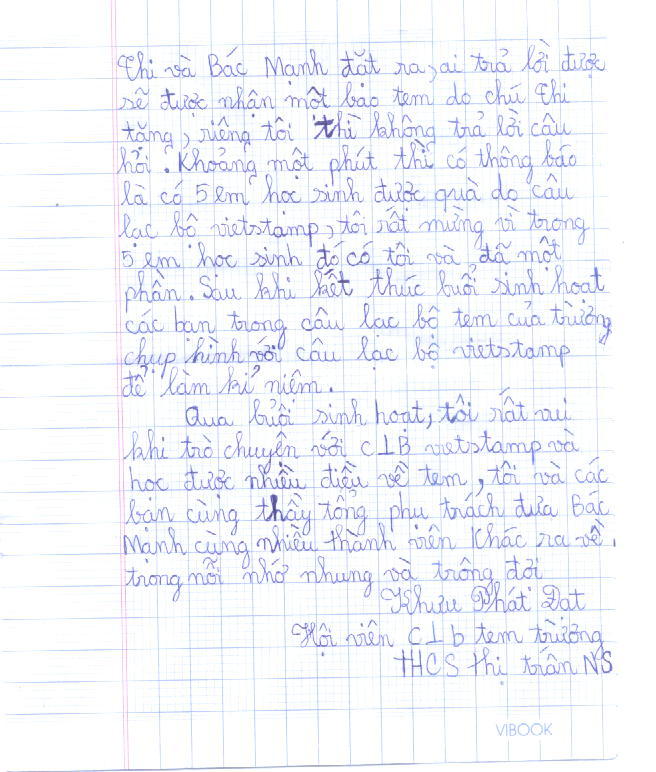 Thi và Bác Mạnh đặt ra, ai trả lời được
sẽ được nhận một bao tem do chú Thi
tặng, riêng tôi thì không trả lời câu
hỏi. Khoảng một phút thì có thông báo
là có 5 em học sinh được quà do câu
lạc bộ vietstamp, tôi rất mừng vì trong
5 em học sinh đó có tôi và đã một
phần. Sau khi kết thúc buổi sinh hoạt
các bạn trong câu lạc bộ tem của trường
chụp hình với câu lạc bộ vietstamp
để làm kỉ niệm.
Qua buổi sinh hoạt, tôi rất vui
khi trò chuyện với CLB vietstamp và
học được nhiều điều về tem, tôi và các
bạn cùng thầy tổng phụ trách đưa Bác
Mạnh cùng nhiều thành viên khác ra về
trong nỗi nhớ nhung và trông đợi
Khưu Phát Đạt
Hội viên CLb tem trường
THCS thị trấn NS
VIBOOK